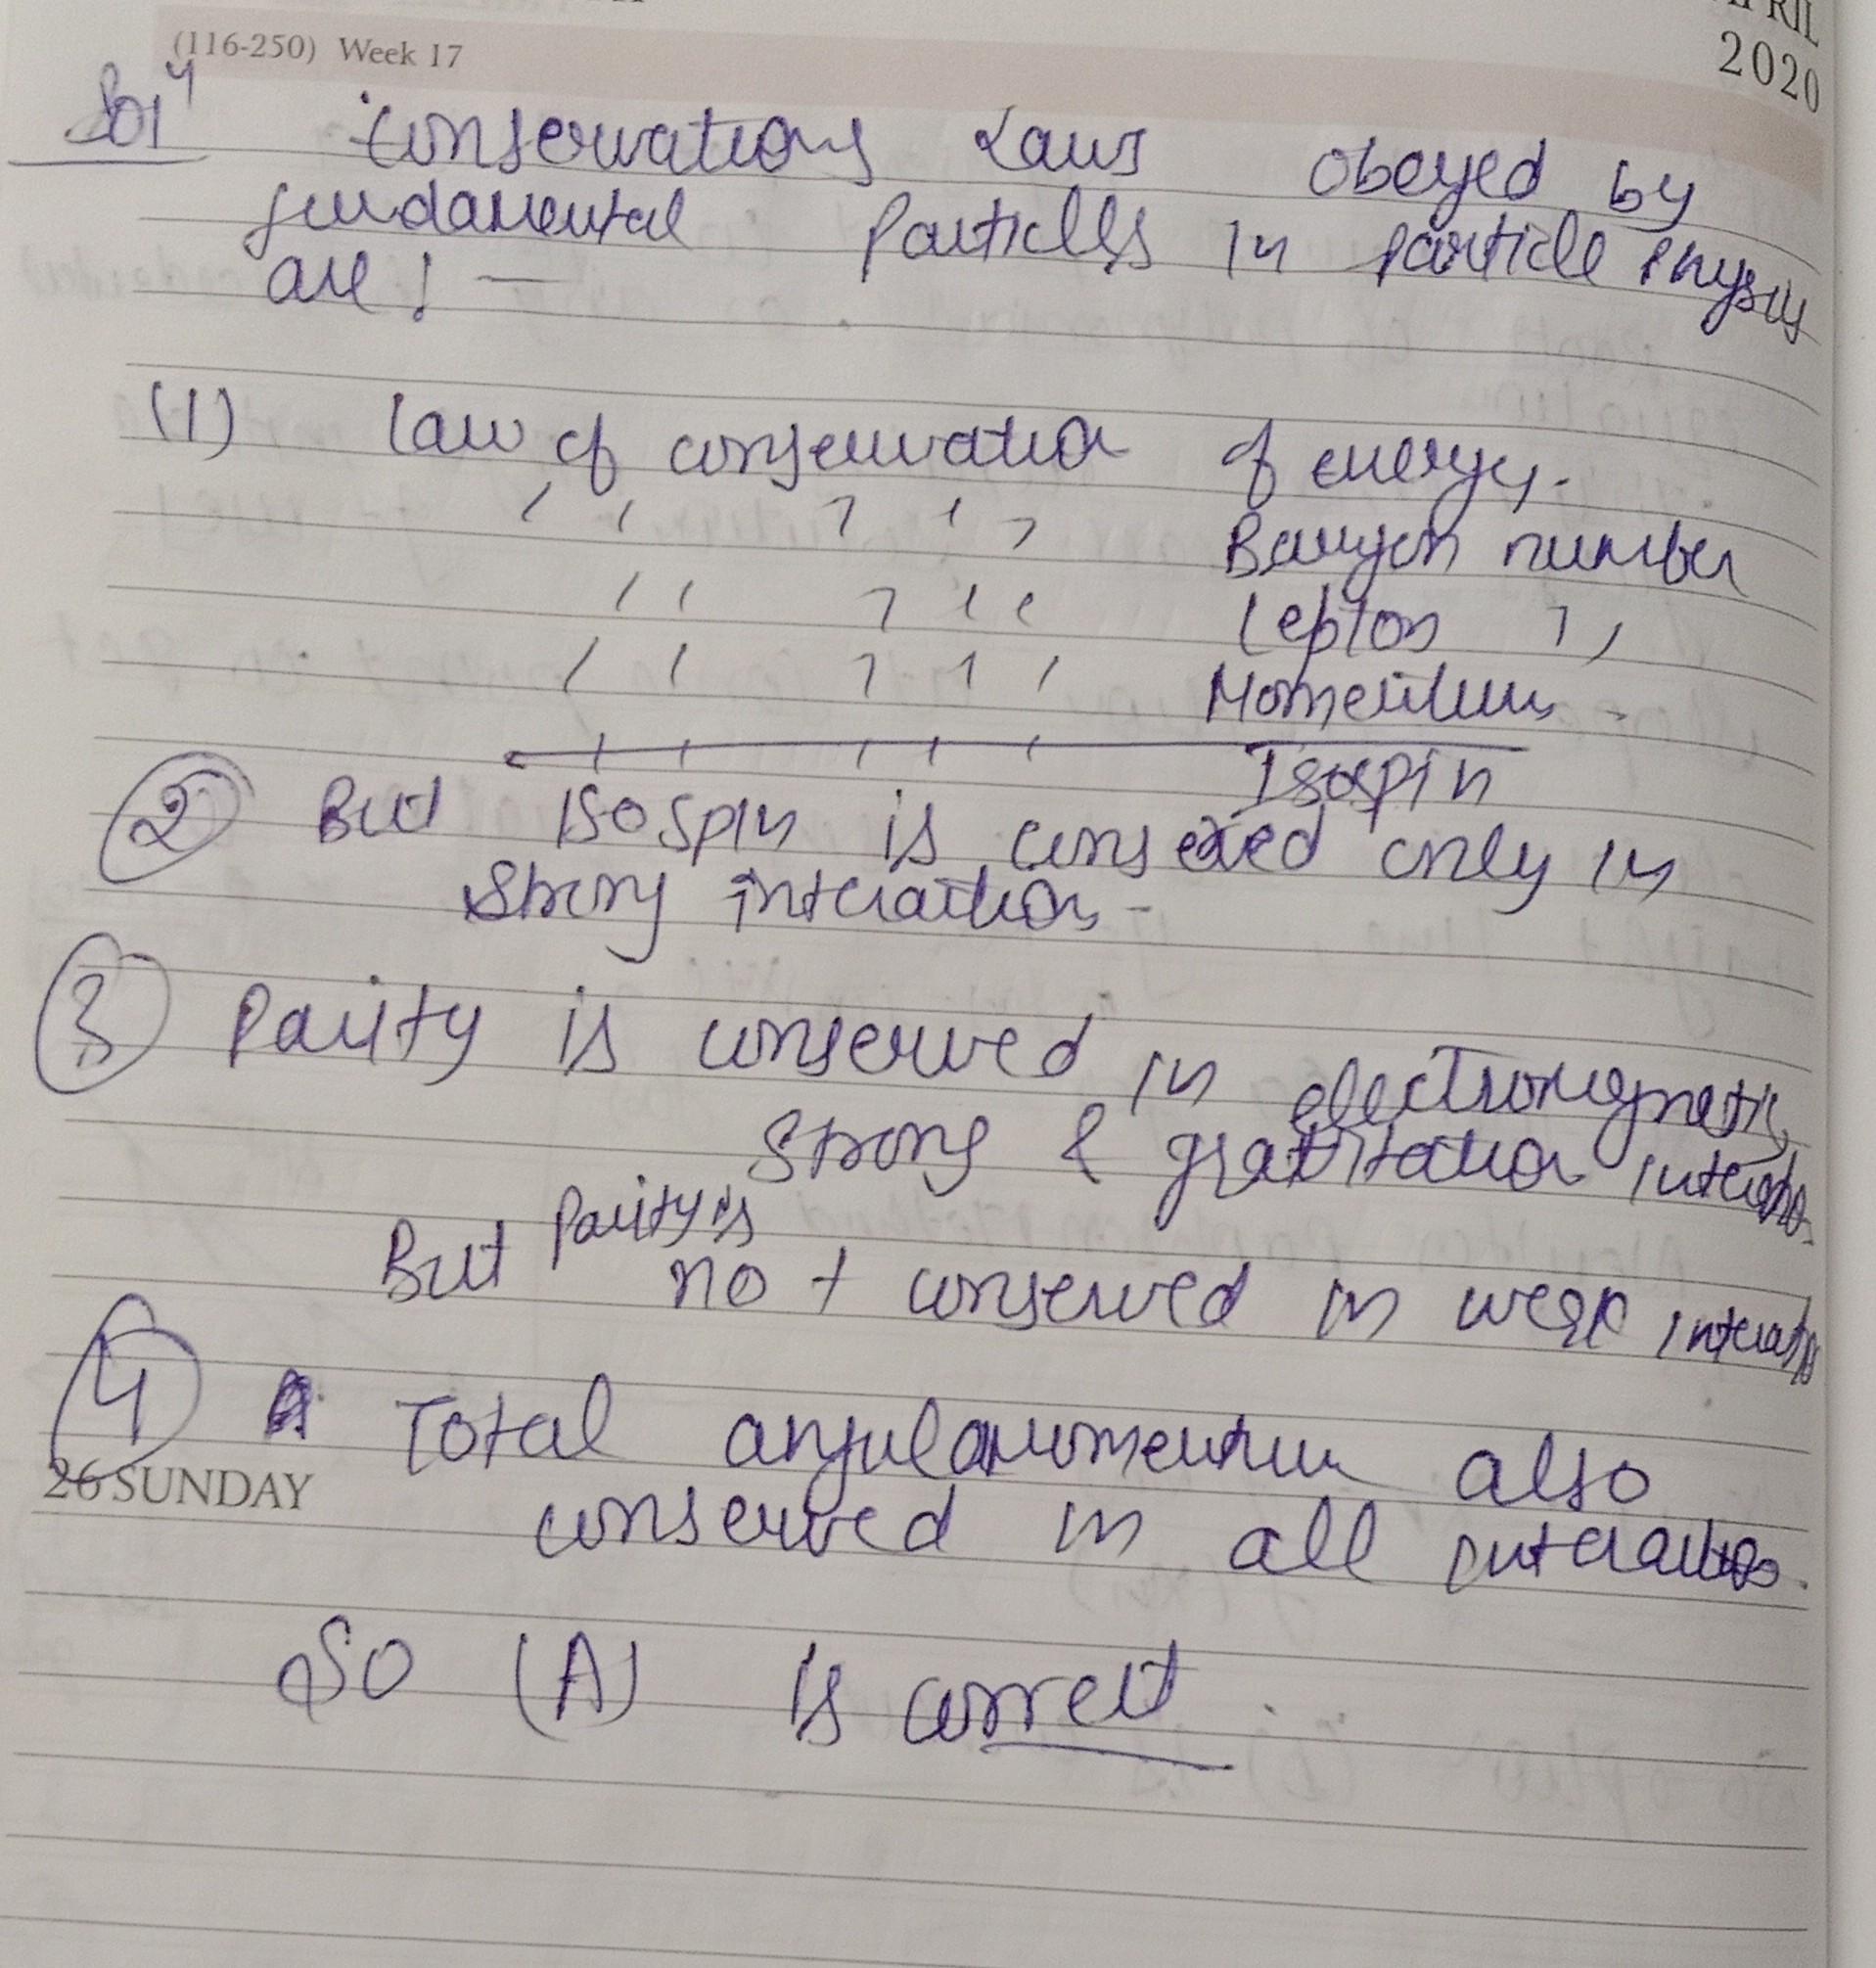 APRIL
2020
(116-250) Week 17
Solⁿ Conservations Laws obeyed by
fundamental Particles in particle physics
are! —
(1) Law of conservation of energy.
,, ,,, Baryon number
,, ,,, Lepton ,,
,, ,,, Momentum -
,, ,,, Isospin
2 But isospin is conserved only in
strong interaction -
3 Parity is conserved in electromagnetic,
strong & gratitation interaction
But Parity is not conserved in weak interaction
4 Total angular momentum also
26 SUNDAY
conserved in all interaction.
So (A) is correct.